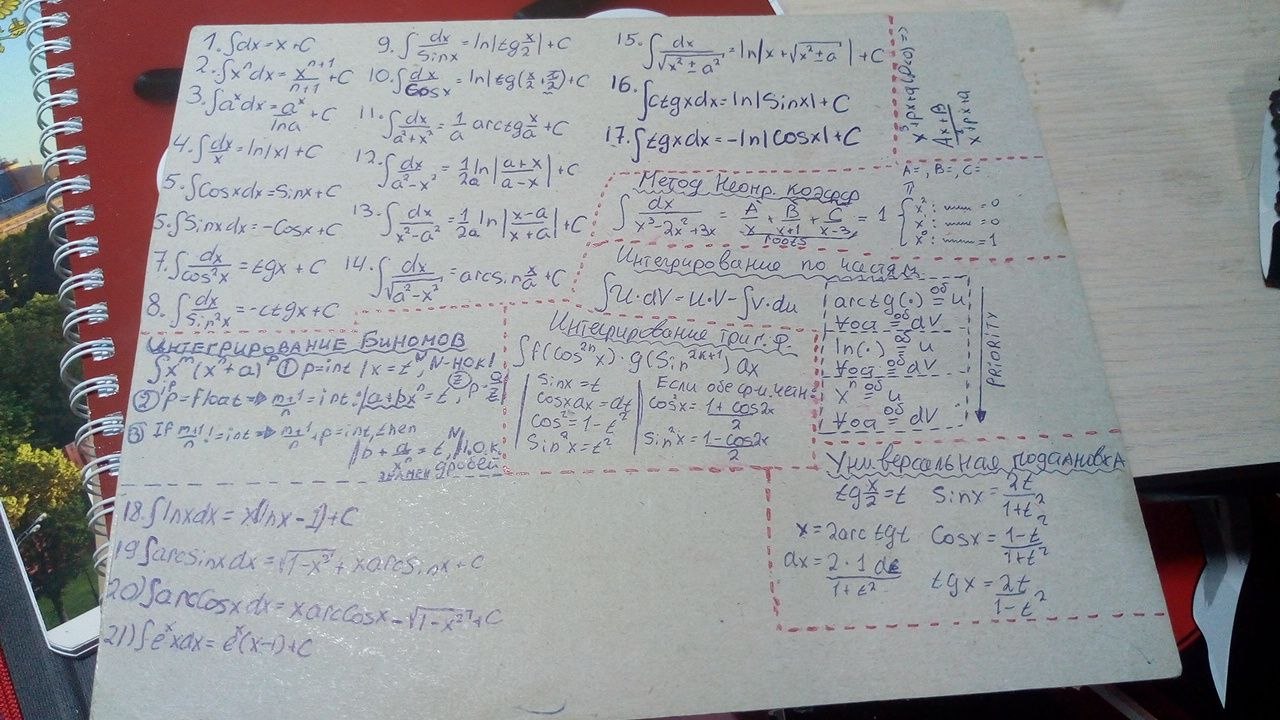 1. ∫dx=x+C
2. ∫xⁿdx=xⁿ⁺¹/n+1+C
3. ∫aˣdx=aˣ/lna+C
4. ∫dx/x=ln|x|+C
5. ∫Cosxdx=Sinx+C
5. ∫Sinxdx=-Cosx+C
7. ∫dx/cos²x=tgx+C
8. ∫dx/Sin²x=-ctgx+C
9. ∫dx/Sinx=ln|tg x/2|+C
10. ∫dx/Cosx=ln|tg(x/2+π/2)+C
11. ∫dx/a²+x²=1/a arctg x/a+C
12. ∫dx/a²-x²=1/2a ln|a+x/a-x|+C
13. ∫dx/x²-a²=1/2a ln|x-a/x+a|+C
14. ∫dx/√a²-x²=arcsin x/a+C
15. ∫dx/√x²±a²=ln|x+√x²±a|+C
16. ∫ctgxdx=ln|Sinx|+C
17. ∫tgxdx=-ln|Cosx|+C
Ax+B
Метод Неопр. коэфф
∫dx/x³-2x²+3x = A/x+B/x+1+C/x-3=1
roots
A=, B=, C=
x²: = 0
x: = 0
x⁰: = 1
Интегрирование по частям
∫U·dV=U·V-∫V·du
arctg(·) об= u
∀оа об= dV
ln(·) об= u
∀оа об= dV
xⁿ об= u
∀оа об= dV
PRIORITY
ИНТЕГРИРОВАНИЕ БИНОМОВ
∫xᵐ(xⁿ+a)ᵖ ① p=int |x=tᴺ, N-НОК!
② p=float => m+1/n=int: |a+bxⁿ=t
③ If m+1/n!=int => m+1/n+p=int, then
|b+a/xⁿ=tᴺ, Н.О.К.
знамен дробей
Интегрирование триг. ф.
∫f(cos²ⁿx)·g(Sin²ᵏ⁺¹)dx
Sinx=t
Cosxdx=dt
Cos²=1-t²
Sin²x=t²
Если обе ф-и четн:
Cos²x=1+cos2x/2
Sin²x=1-cos2x/2
Универсальная подстановка
tg x/2=t Sinx=2t/1+t²
x=2arctgt Cosx=1-t²/1+t²
dx=2·1 dt/1+t² tgx=2t/1-t²
18. ∫lnxdx=x(lnx-1)+C
19) ∫arcSinxdx=√1-x²+xarcSinx+C
20) ∫arcCosxdx=xarcCosx-√1-x²+C
21) ∫eˣxdx=eˣ(x-1)+C